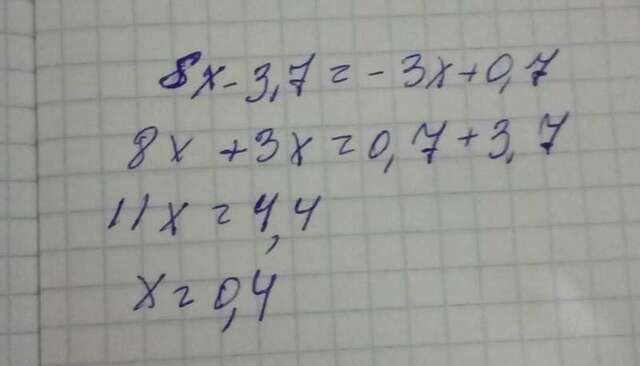 8x - 3,7 = - 3x + 0,7
8x + 3x = 0,7 + 3,7
11x = 4,4
x = 0,4